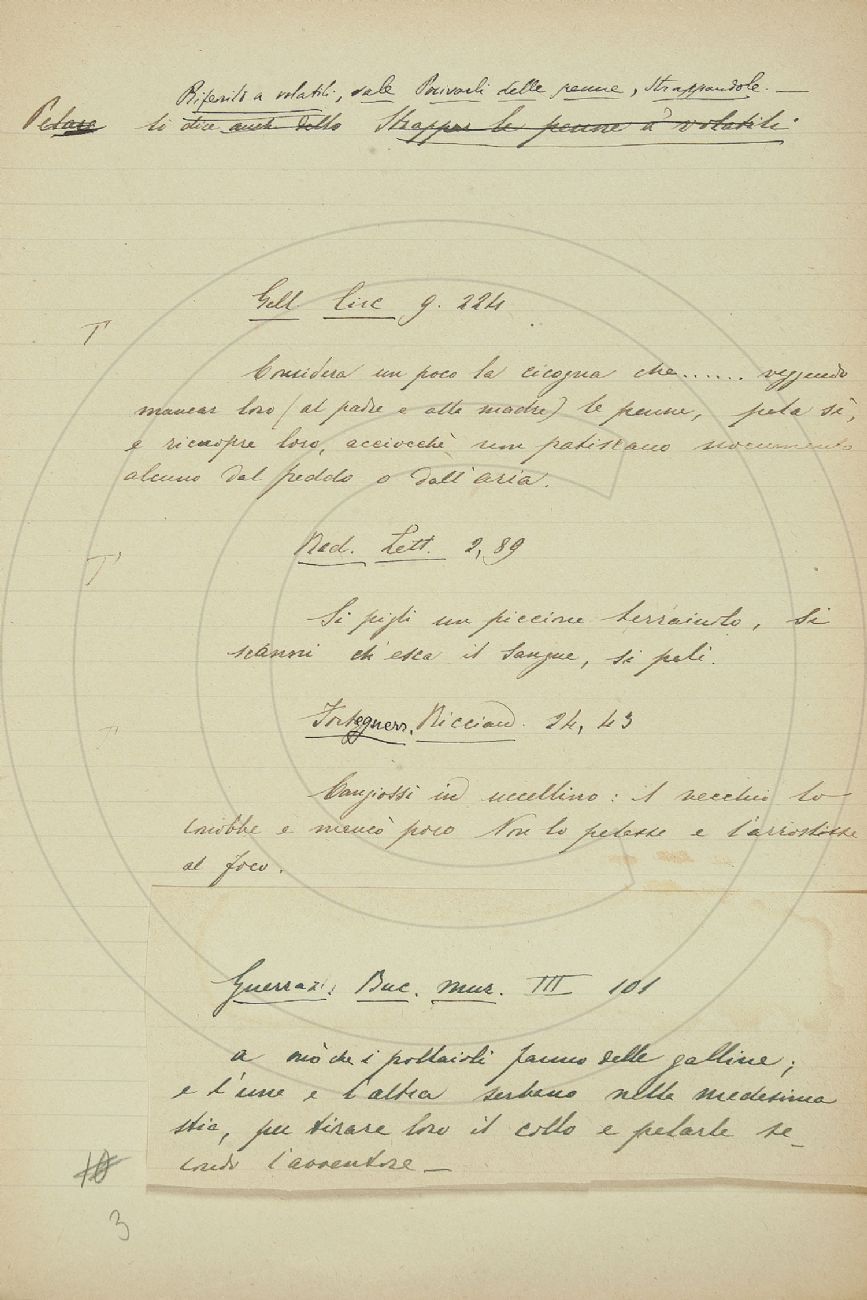 Riferito a volatili, vale Privarli delle penne, strappandole. —
Pelare Si dice anche dello Strappar le penne a' volatili.
Gell. Circ. g. 224
T
Considera un poco la cicogna che...... veggendo
mancar loro (al padre e alla madre) le penne, pela sè,
e ricuopre loro, acciocchè non patiscano nocumento
alcuno dal freddo o dall'aria.
Red. Lett. 2, 89
T
Si pigli un piccione terraiuolo, si
scanni ch'esca il sangue, si peli.
Forteguerr. Ricciard. 24, 43
T
Cangiossi in uccellino: il vecchio lo
conobbe e mancò poco Non lo pelasse e l'arrostisse
al foco.
Guerraz. Buc. mur. III 101
a mò che i pollaioli fanno delle galline;
e l'une e l'altra serbano nella medesima
stia, per tirare loro il collo e pelarle se-
condo l'avventore —
10
3